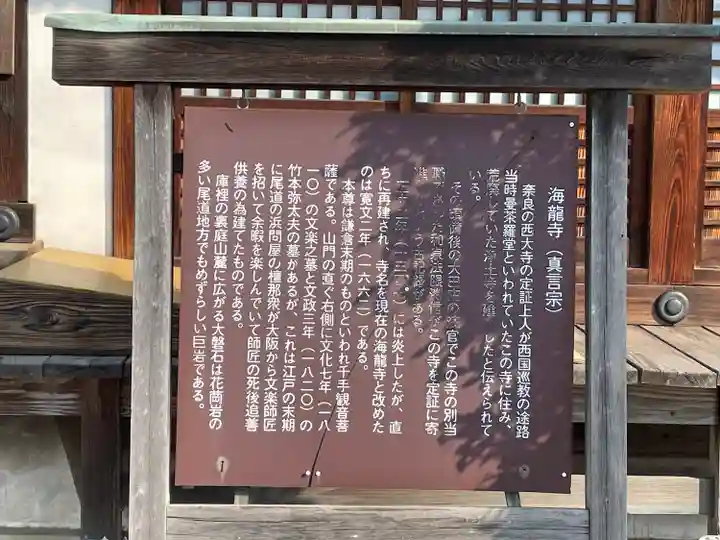 海龍寺（真言宗）
奈良の西大寺の定証上人が西国巡教の途路
当時曼荼羅堂といわれていたこの寺に住み、
荒廃していた浄土寺を したと伝えられて
いる。
その 後の太田 官でこの寺の別当
この寺を定証に寄
ある。
には炎上したが、直
ちに再建され、寺名を現在の海龍寺と改めた
のは寛文二年（一六六二）である。
本尊は鎌倉末期のものといわれ千手観音菩
薩である。山門の直ぐ右側に文化七年（一八
一〇）の文楽之墓と文政三年（一八二〇）の
竹本弥太夫の墓があるが、これは江戸の末期
に尾道の浜問屋の檀那衆が大阪から文楽師匠
を招いて余暇を楽しんでいて師匠の死後追善
供養の為建てたものである。
庫裡の裏庭山麓に広がる大磐石は花崗岩の
多い尾道地方でもめずらしい巨岩である。